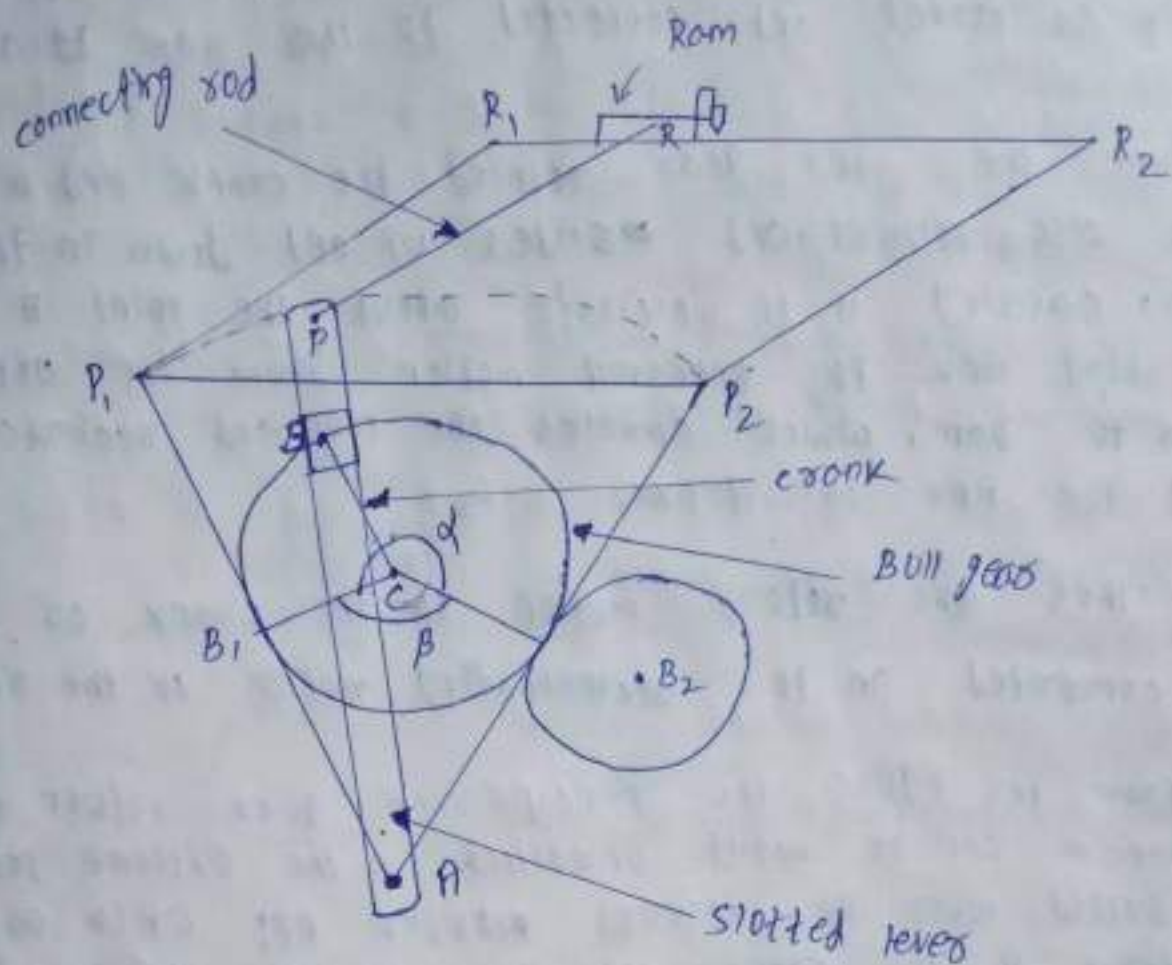 Ram
connecting rod
R1
R
R2
P
P1
P2
B
crank
α
C
Bull gear
B1
β
B2
A
Slotted lever